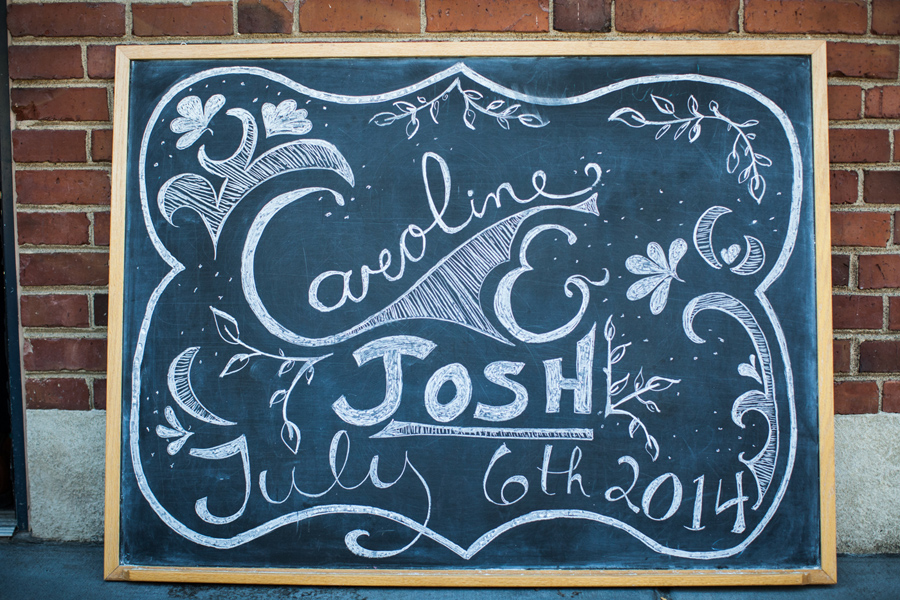 Caroline
&
JOSH
July 6th 2014